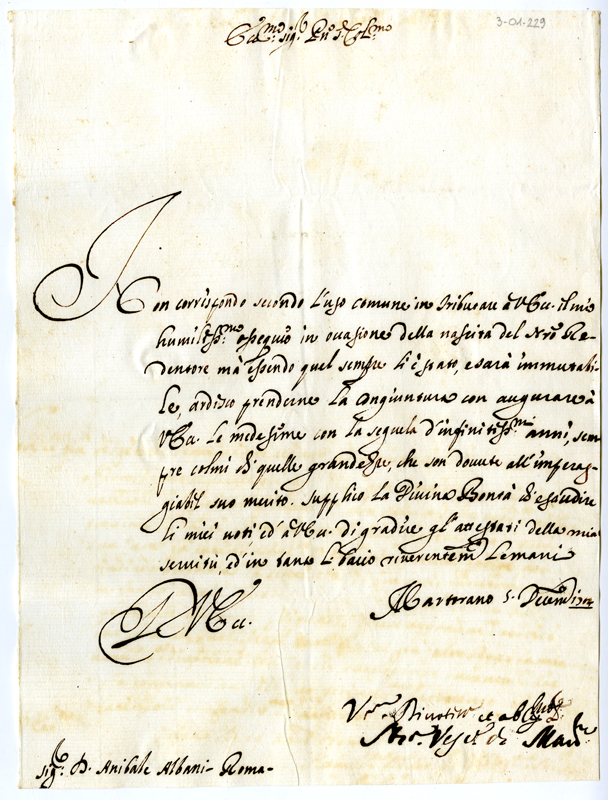 3-01-229
Ecc.mo Sig.r P.rone Col.mo
Non corrispondo secondo l'uso comune in tributare à V.Ecc. il mio
humiliss.mo ossequio in occasione della nascita del N.ro Re-
dentore mà essendo quel sempre li è stato, e sarà immutabi-
le, ardisco prenderne la congiuntura con augurare à
V.Ecc. le medesime con la seguela d'infinitiss.mi anni, sem
pre colmi di quelle grandezze, che son dovute all'impereg-
giabil suo merito. Supplico la Divina Bontà di esaudire
li miei voti ed' à V.Ecc. di gradire gl'attestati della mia
servitù, ed' in tanto le bacio riverentem.e le mani
D V.Ecc. Martorano 5. Decemb.
Divotiss.o et oblig.
Vesc.o di Mart.
Sig.r D. Anibale Albani - Roma -